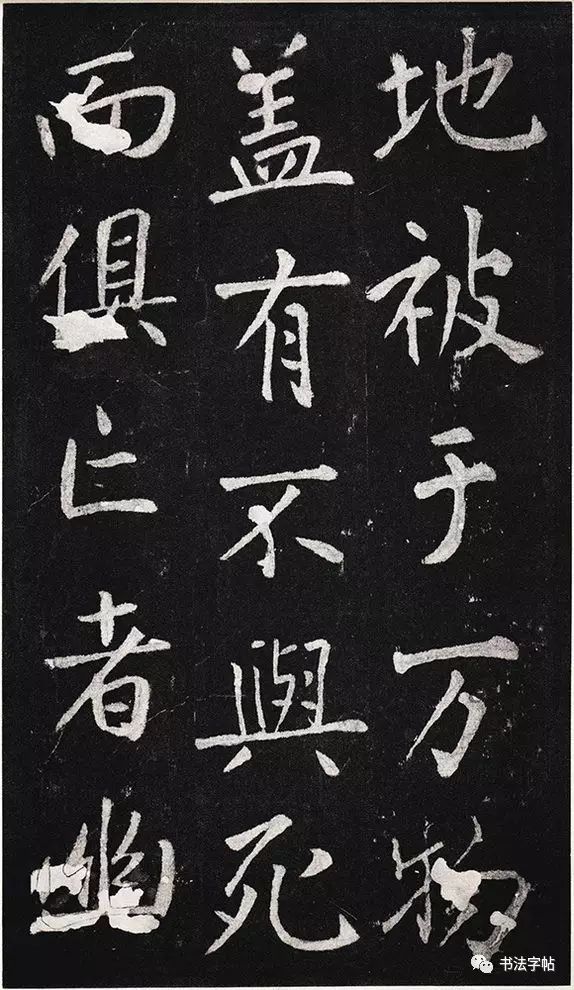 地被于万物
盖有不與死
而俱亡者幽
书法字帖